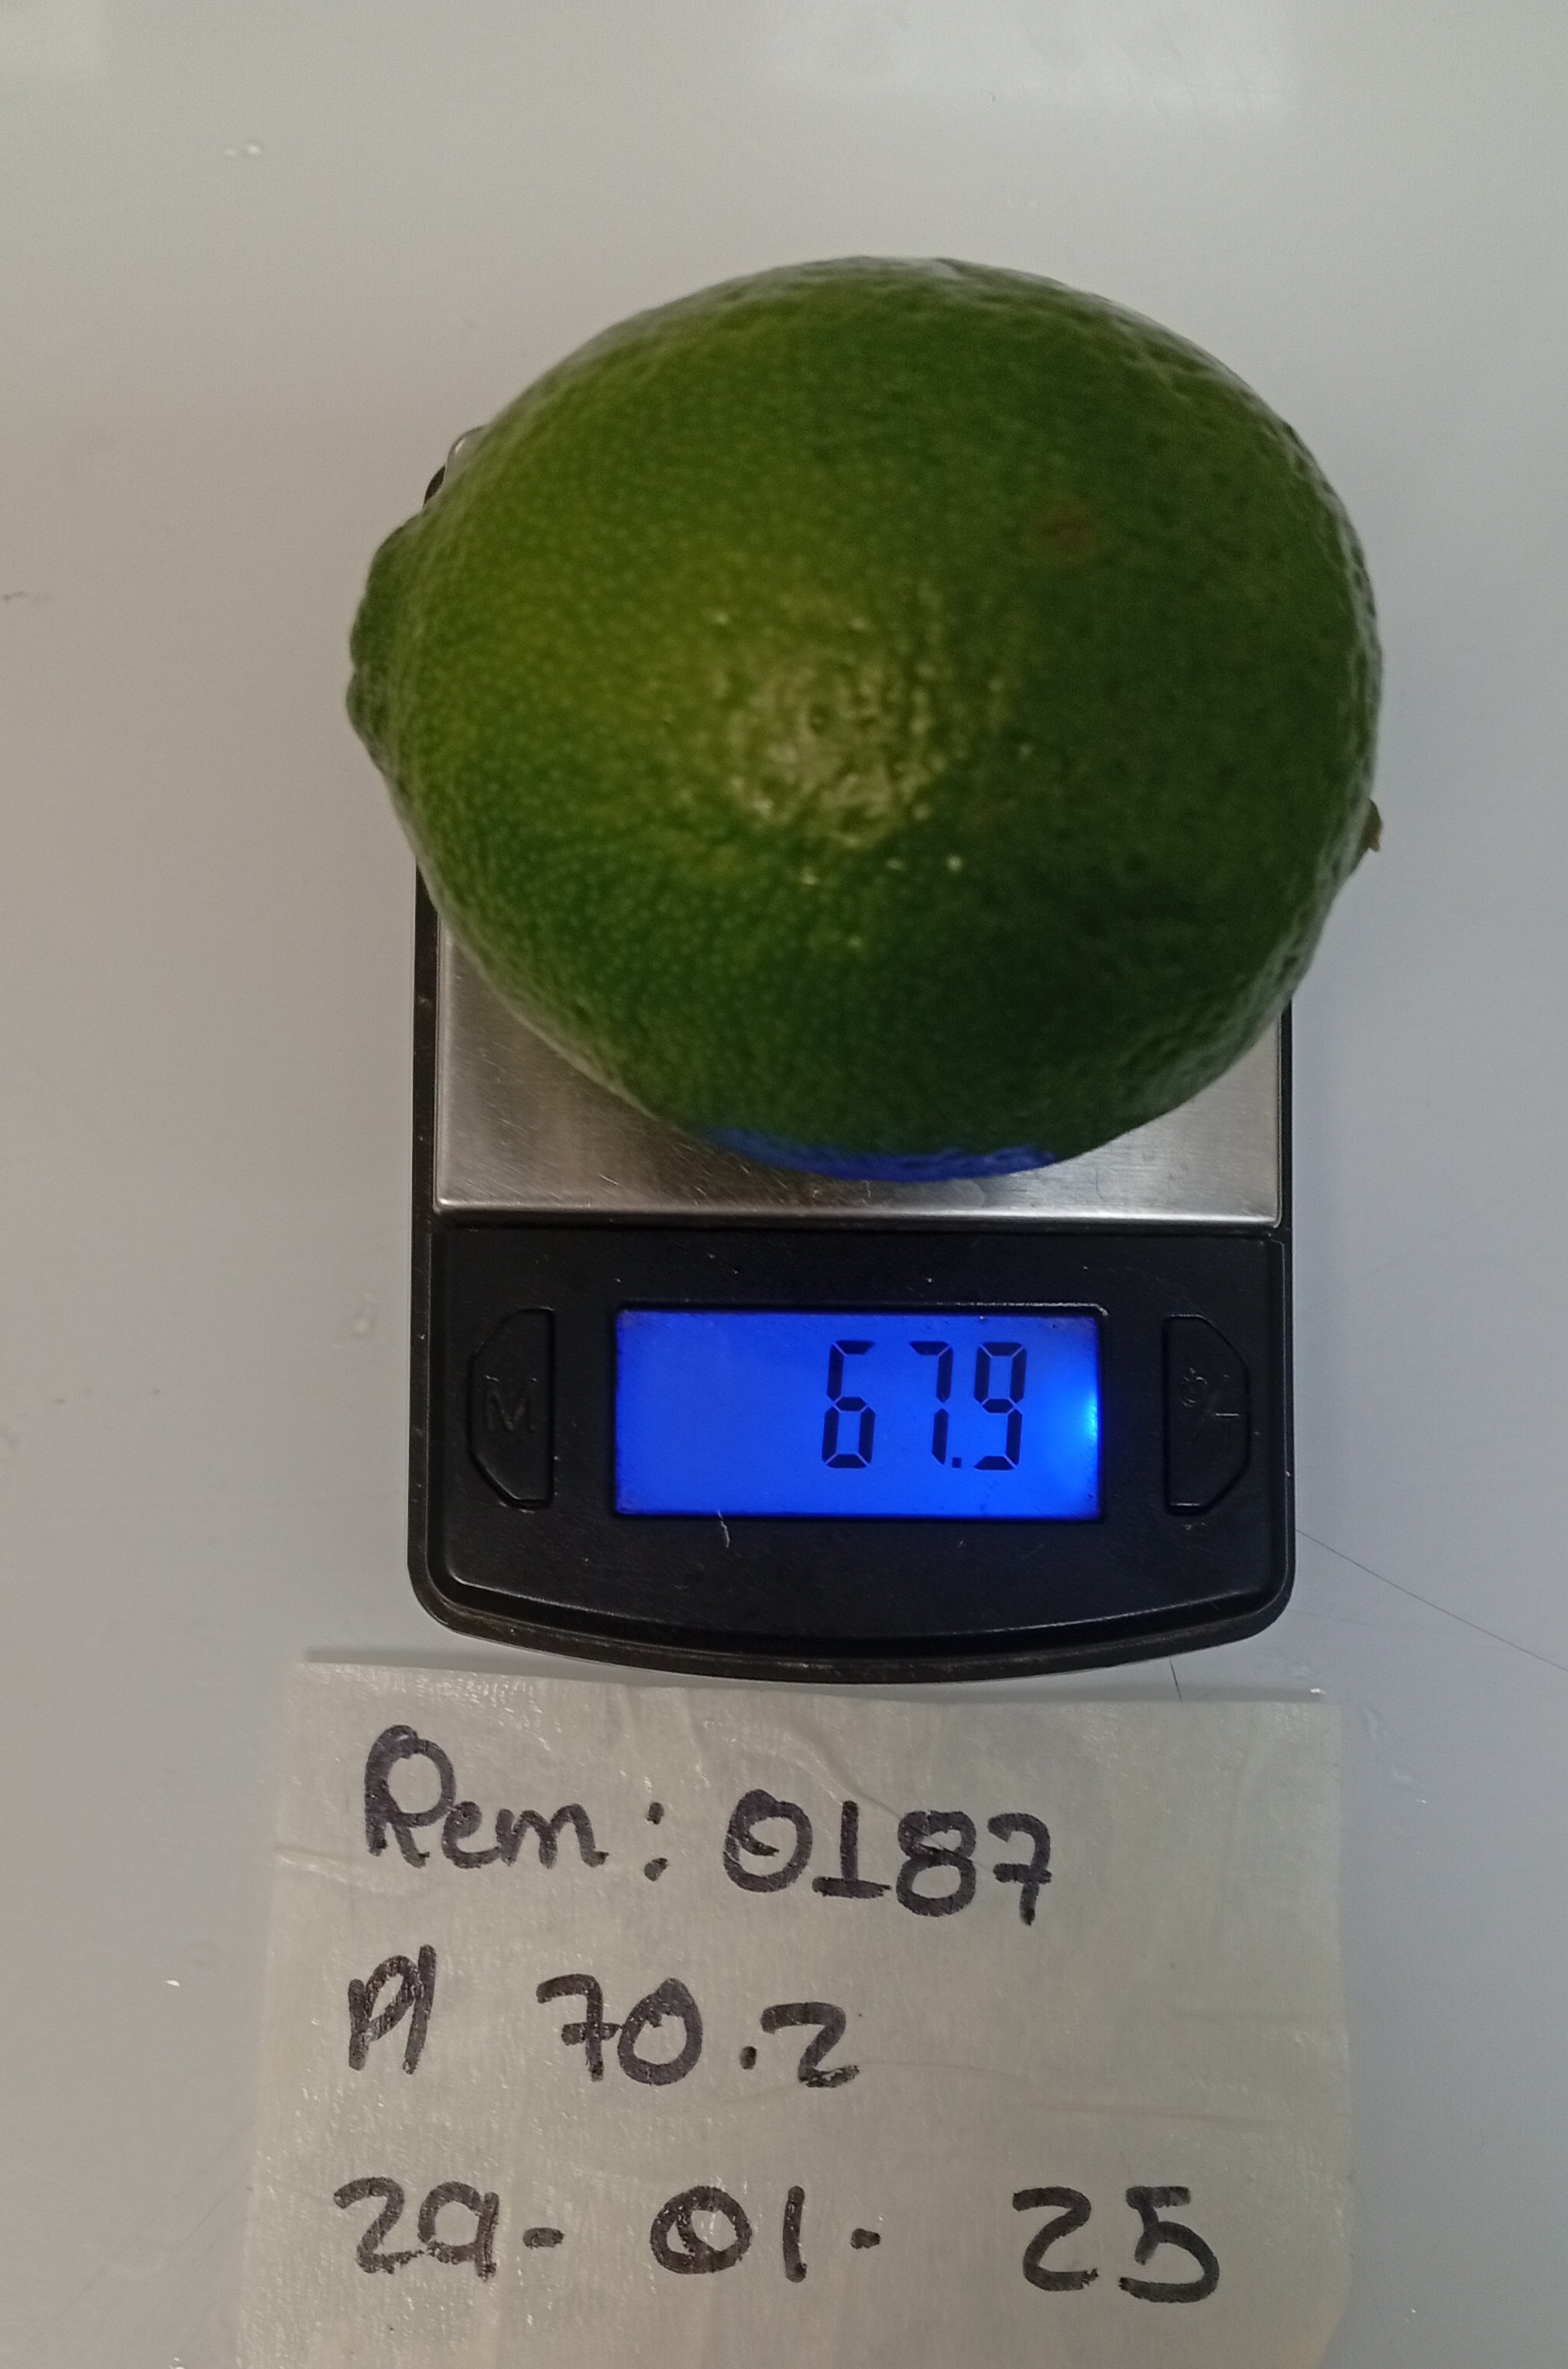 M
67.9
Rem: 0187
PI 70.2
29-01-25